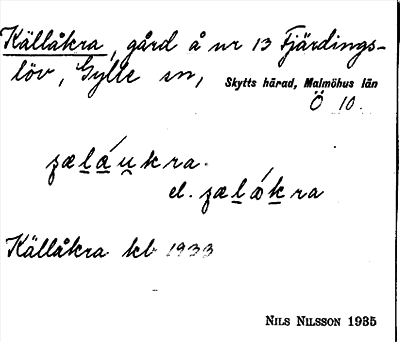 Källåkra, gård å nr 13 Fjärdings-
löv, Gylle sn, Skytts härad, Malmöhus län
Ö 10.
el.
Källåkra kb 1933
NILS NILSSON 1935